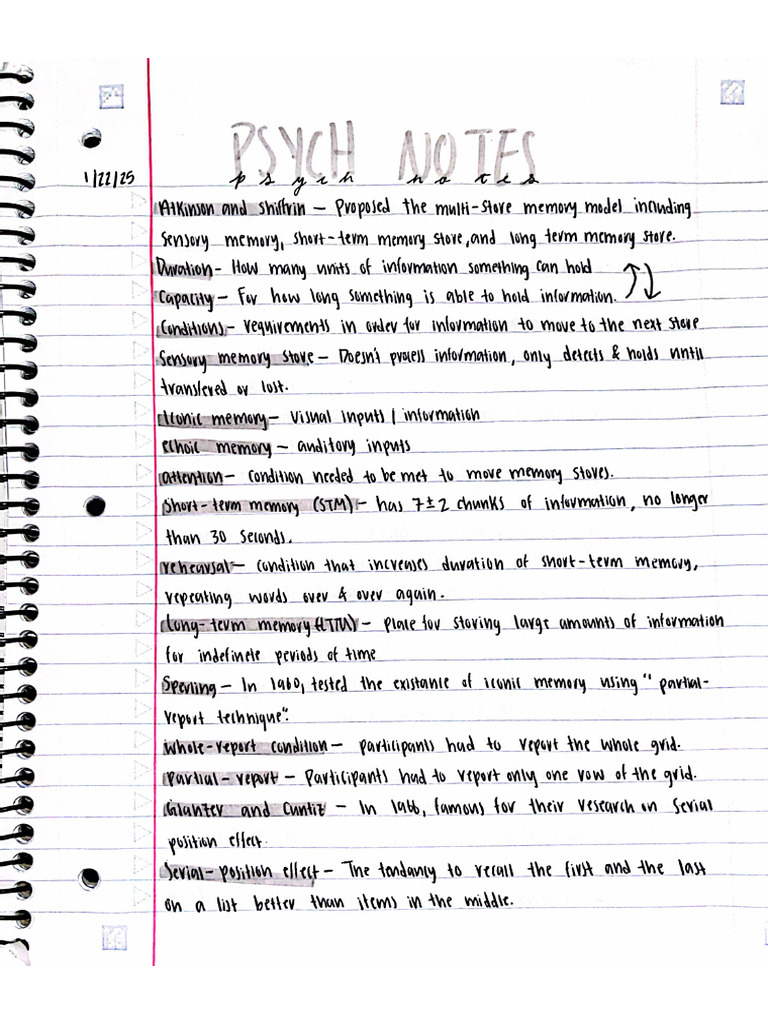 PSYCH NOTES
psych notes
1/22/25
Atkinson and Shiffrin – Proposed the multi-store memory model including
sensory memory, short-term memory store, and long term memory store.
Duration – How many units of information something can hold
Capacity – For how long something is able to hold information.
Conditions – requirements in order for information to move to the next store
Sensory memory store – Doesn't process information, only detects & holds until
transfered or lost.
Iconic memory – visual inputs / information
echoic memory – auditory inputs
attention – condition needed to be met to move memory stores.
Short-term memory (STM) – has 7±2 chunks of information, no longer
than 30 seconds.
rehearsal – condition that increases duration of short-term memory,
repeating words over & over again.
Long-term memory (LTM) – place for storing large amounts of information
for indefinete periods of time
Sperling – In 1960, tested the existance of iconic memory using "partial-
report technique".
whole-report condition – participants had to report the whole grid.
partial-report – Participants had to report only one row of the grid.
Glanzer and Cuntiz – In 1966, famous for their research on serial
position effect.
Serial-position effect – The tendancy to recall the first and the last
on a list better than items in the middle.